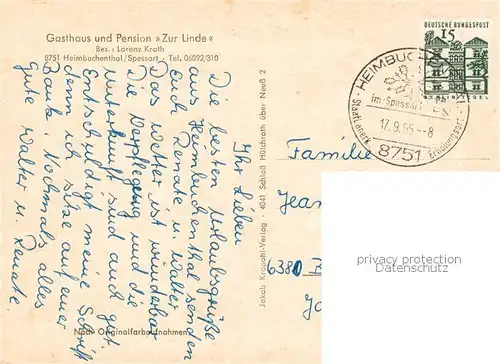 Gasthaus und Pension »Zur Linde«
Bes.: Lorenz Kroth
8751 Heimbuchenthal/Spessart · Tel. 06092/310
Ihr Lieben
Die besten Urlaubsgrüße
aus Heimbuchenthal senden
Euch Renate u. Walter
Das Wetter ist wunderbar
Die Verpflegung und die
Unterkunft sind auch gut.
Entschuldigt meine Schrift
denn ich sitze auf einer
Bank. Nochmals alles
Gute Walter u. Renate.
Nach Originalfarbaufnahmen
Jakob Krapohl-Verlag · 4041 Schloß Hülchrath über Neuß 2
DEUTSCHE BUNDESPOST
15
HEIMBUCH
im Spessart
17.9.65-8
8751
Familie
Jea
6380
privacy protection
Datenschutz